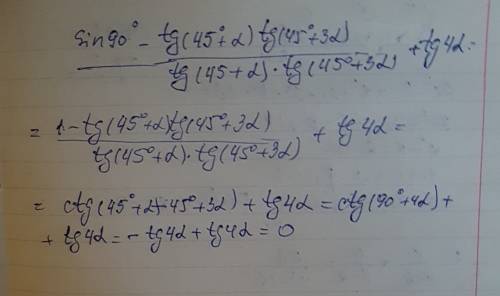 sin90° - tg(45°+α) tg(45°+3α)
tg(45+α)·tg(45°+3α) + tg4α=
= 1-tg(45°+α)tg(45°+3α)
tg(45°+α)·tg(45°+3α) + tg4α=
= ctg(45°+α+45°+3α) + tg4α = ctg(90°+4α)+
+ tg4α = -tg4α + tg4α = 0